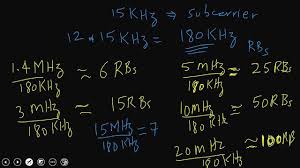 15 KHz ⇒ subcarrier
12 * 15 KHz = 180 KHz
RBs
1.4 MHz / 180 KHz ≈ 6 RBs
3 MHz / 180 KHz ≈ 15 RBs
15 MHz / 180 KHz = 7
5 MHz / 180 KHz ≈ 25 RBs
10 MHz / 180 KHz ≈ 50 RBs
20 MHz / 180 KHz ≈ 100 RBs